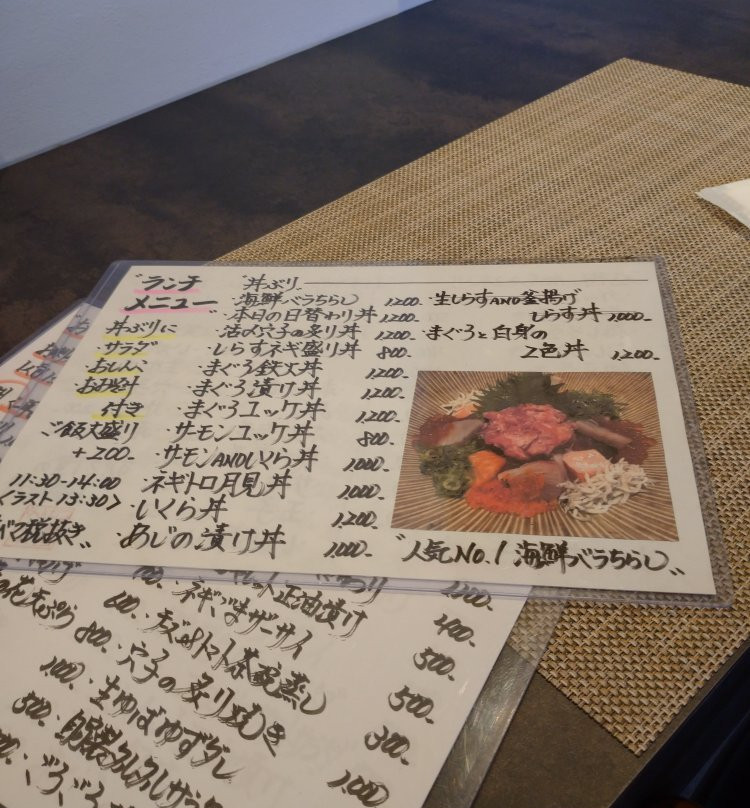 "ランチ
メニュー"
丼ぶりに
サラダ
おしんこ
お味噌汁
付き
ご飯大盛り
+200-
11:30-14:00
<ラスト13:30>
税抜き"
丼ぶり
・海鮮バラちらし 1200-
・本日の日替わり丼 1200-
・活〆穴子の炙り丼 1200-
・しらすネギ盛り丼 800-
・まぐろ鉄火丼 1200-
・まぐろ漬け丼 1200-
・まぐろユッケ丼 1200-
・サーモンユッケ丼 800-
・サーモンANDいくら丼 1000-
・ネギトロ月見丼 1000-
・いくら丼 1200-
・あじの漬け丼 1000-
・生しらすAND釜揚げ
しらす丼 1000-
・まぐろと白身の
2色丼 1200-
"人気No.1 海鮮バラちらし"
醤油漬け
・ネギごまザーサイ 400-
600- 茶碗蒸し 500-
800- ・穴子の炙り焼き 500-
1000- ・生ゆばゆずダレ 300-
500- 1000-